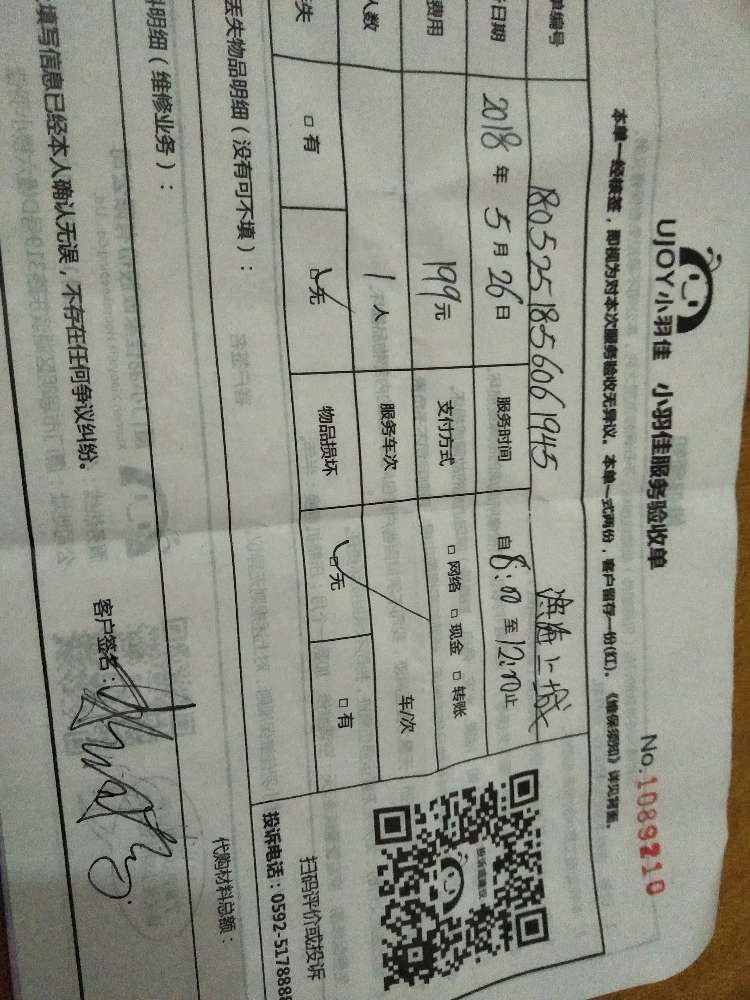 UJOY小羽佳 小羽佳服务验收单 No.1089210
本单一经核签，即视为对本次服务验收无异议。本单一式两份，客户留存一份(红)。《维保须知》详见背面。
单编号 1805251856061945
日期 2018年5月26日 服务时间 自8:00至12:00止
费用 199元 支付方式 □网络 □现金 □转账
人数 1人 服务车次 车/次
失 □有 □无 物品损坏 □无 □有
丢失物品明细（没有可不填）：
扫码评价或投诉
投诉电话：0592-517888
明细（维修业务）：
代购材料总额：
填写信息已经本人确认无误，不存在任何争议纠纷。
客户签名：